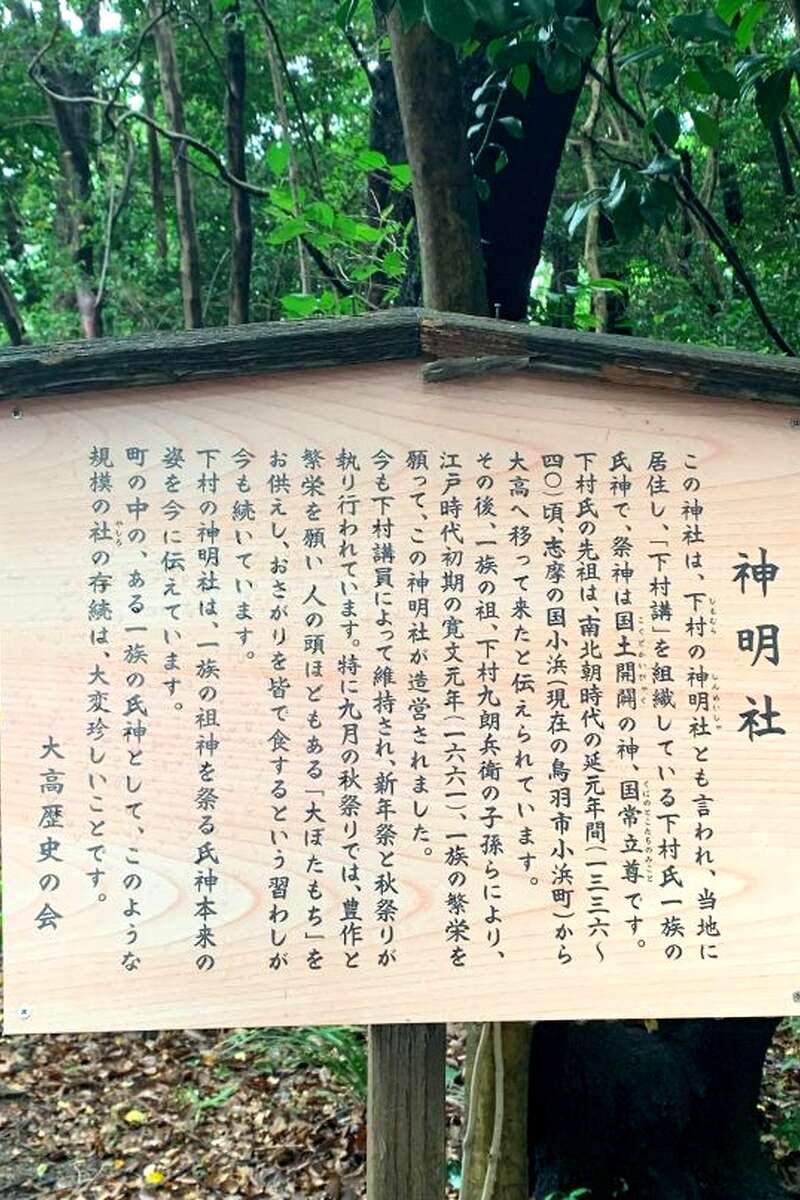 神明社
この神社は、下村の神明社とも言われ、当地に
居住し、「下村講」を組織している下村氏一族の
氏神で、祭神は国土開闢の神、国常立尊です。
下村氏の先祖は、南北朝時代の延元年間(一三三六～
四〇)頃、志摩の国小浜(現在の鳥羽市小浜町)から
大高へ移って来たと伝えられています。
その後、一族の祖、下村九朗兵衛の子孫らにより、
江戸時代初期の寛文元年(一六六一)、一族の繁栄を
願って、この神明社が造営されました。
今も下村講員によって維持され、新年祭と秋祭りが
執り行われています。特に九月の秋祭りでは、豊作と
繁栄を願い人の頭ほどもある「大ぼたもち」を
お供えし、おさがりを皆で食するという習わしが
今も続いています。
下村の神明社は、一族の祖神を祭る氏神本来の
姿を今に伝えています。
町の中の、ある一族の氏神として、このような
規模の社の存続は、大変珍しいことです。
大高歴史の会
しもむら
しんめいしゃ
こくどかいびゃく
くにのとこたちのみこと
やしろ